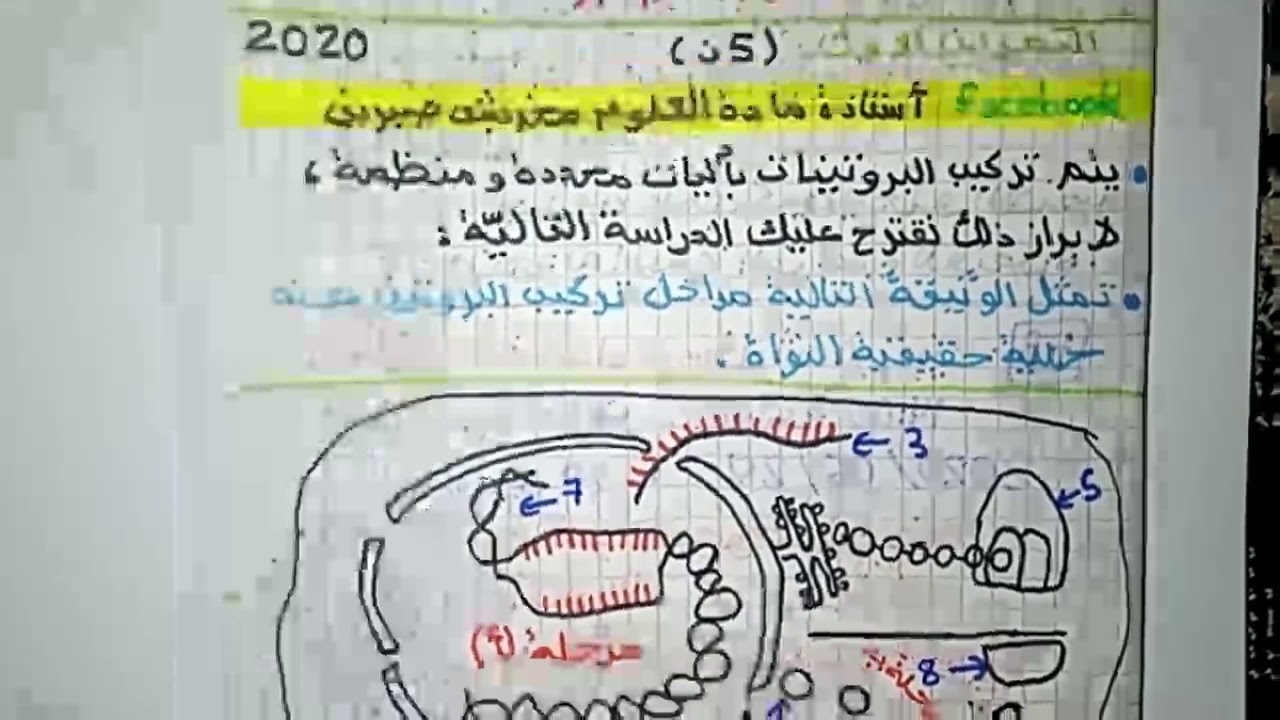 التمرين الأول: (5ن) 2020
Facebook أستاذة مادة العلوم
يتم تركيب البروتينات بآليات محددة و منظمة،
لإبراز ذلك نقترح عليك الدراسة التاليّة:
تمثل الوثيقة التالية مراحل تركيب البروتين عند
خلية حقيقية النواة.
3
7
5
مرحلة (٩)
8